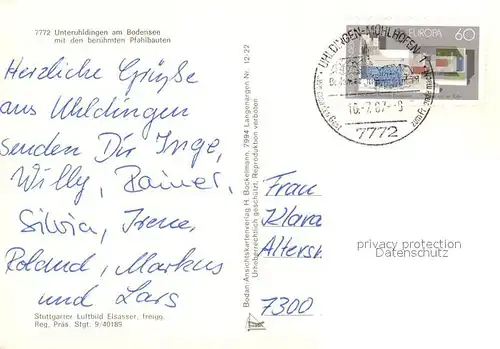 7772 Unteruhldingen am Bodensee
mit den berühmten Pfahlbauten
Herzliche Grüße
aus Uhldingen
senden Dir Inge,
Willy, Rainer,
Silvia, Irene,
Roland, Markus
und Lars
Stuttgarter Luftbild Elsässer, freigg.
Reg. Präs. Stgt. 9/40189
Bodan-Ansichtskartenverlag H. Bockelmann, 7994 Langenargen Nr. 12/22
Urheberrechtlich geschützt. Reproduktion verboten
EUROPA 60
UHLDINGEN-MÜHLHOFEN 1
7772
Frau
Klara
Alterstr
7300
privacy protection
Datenschutz